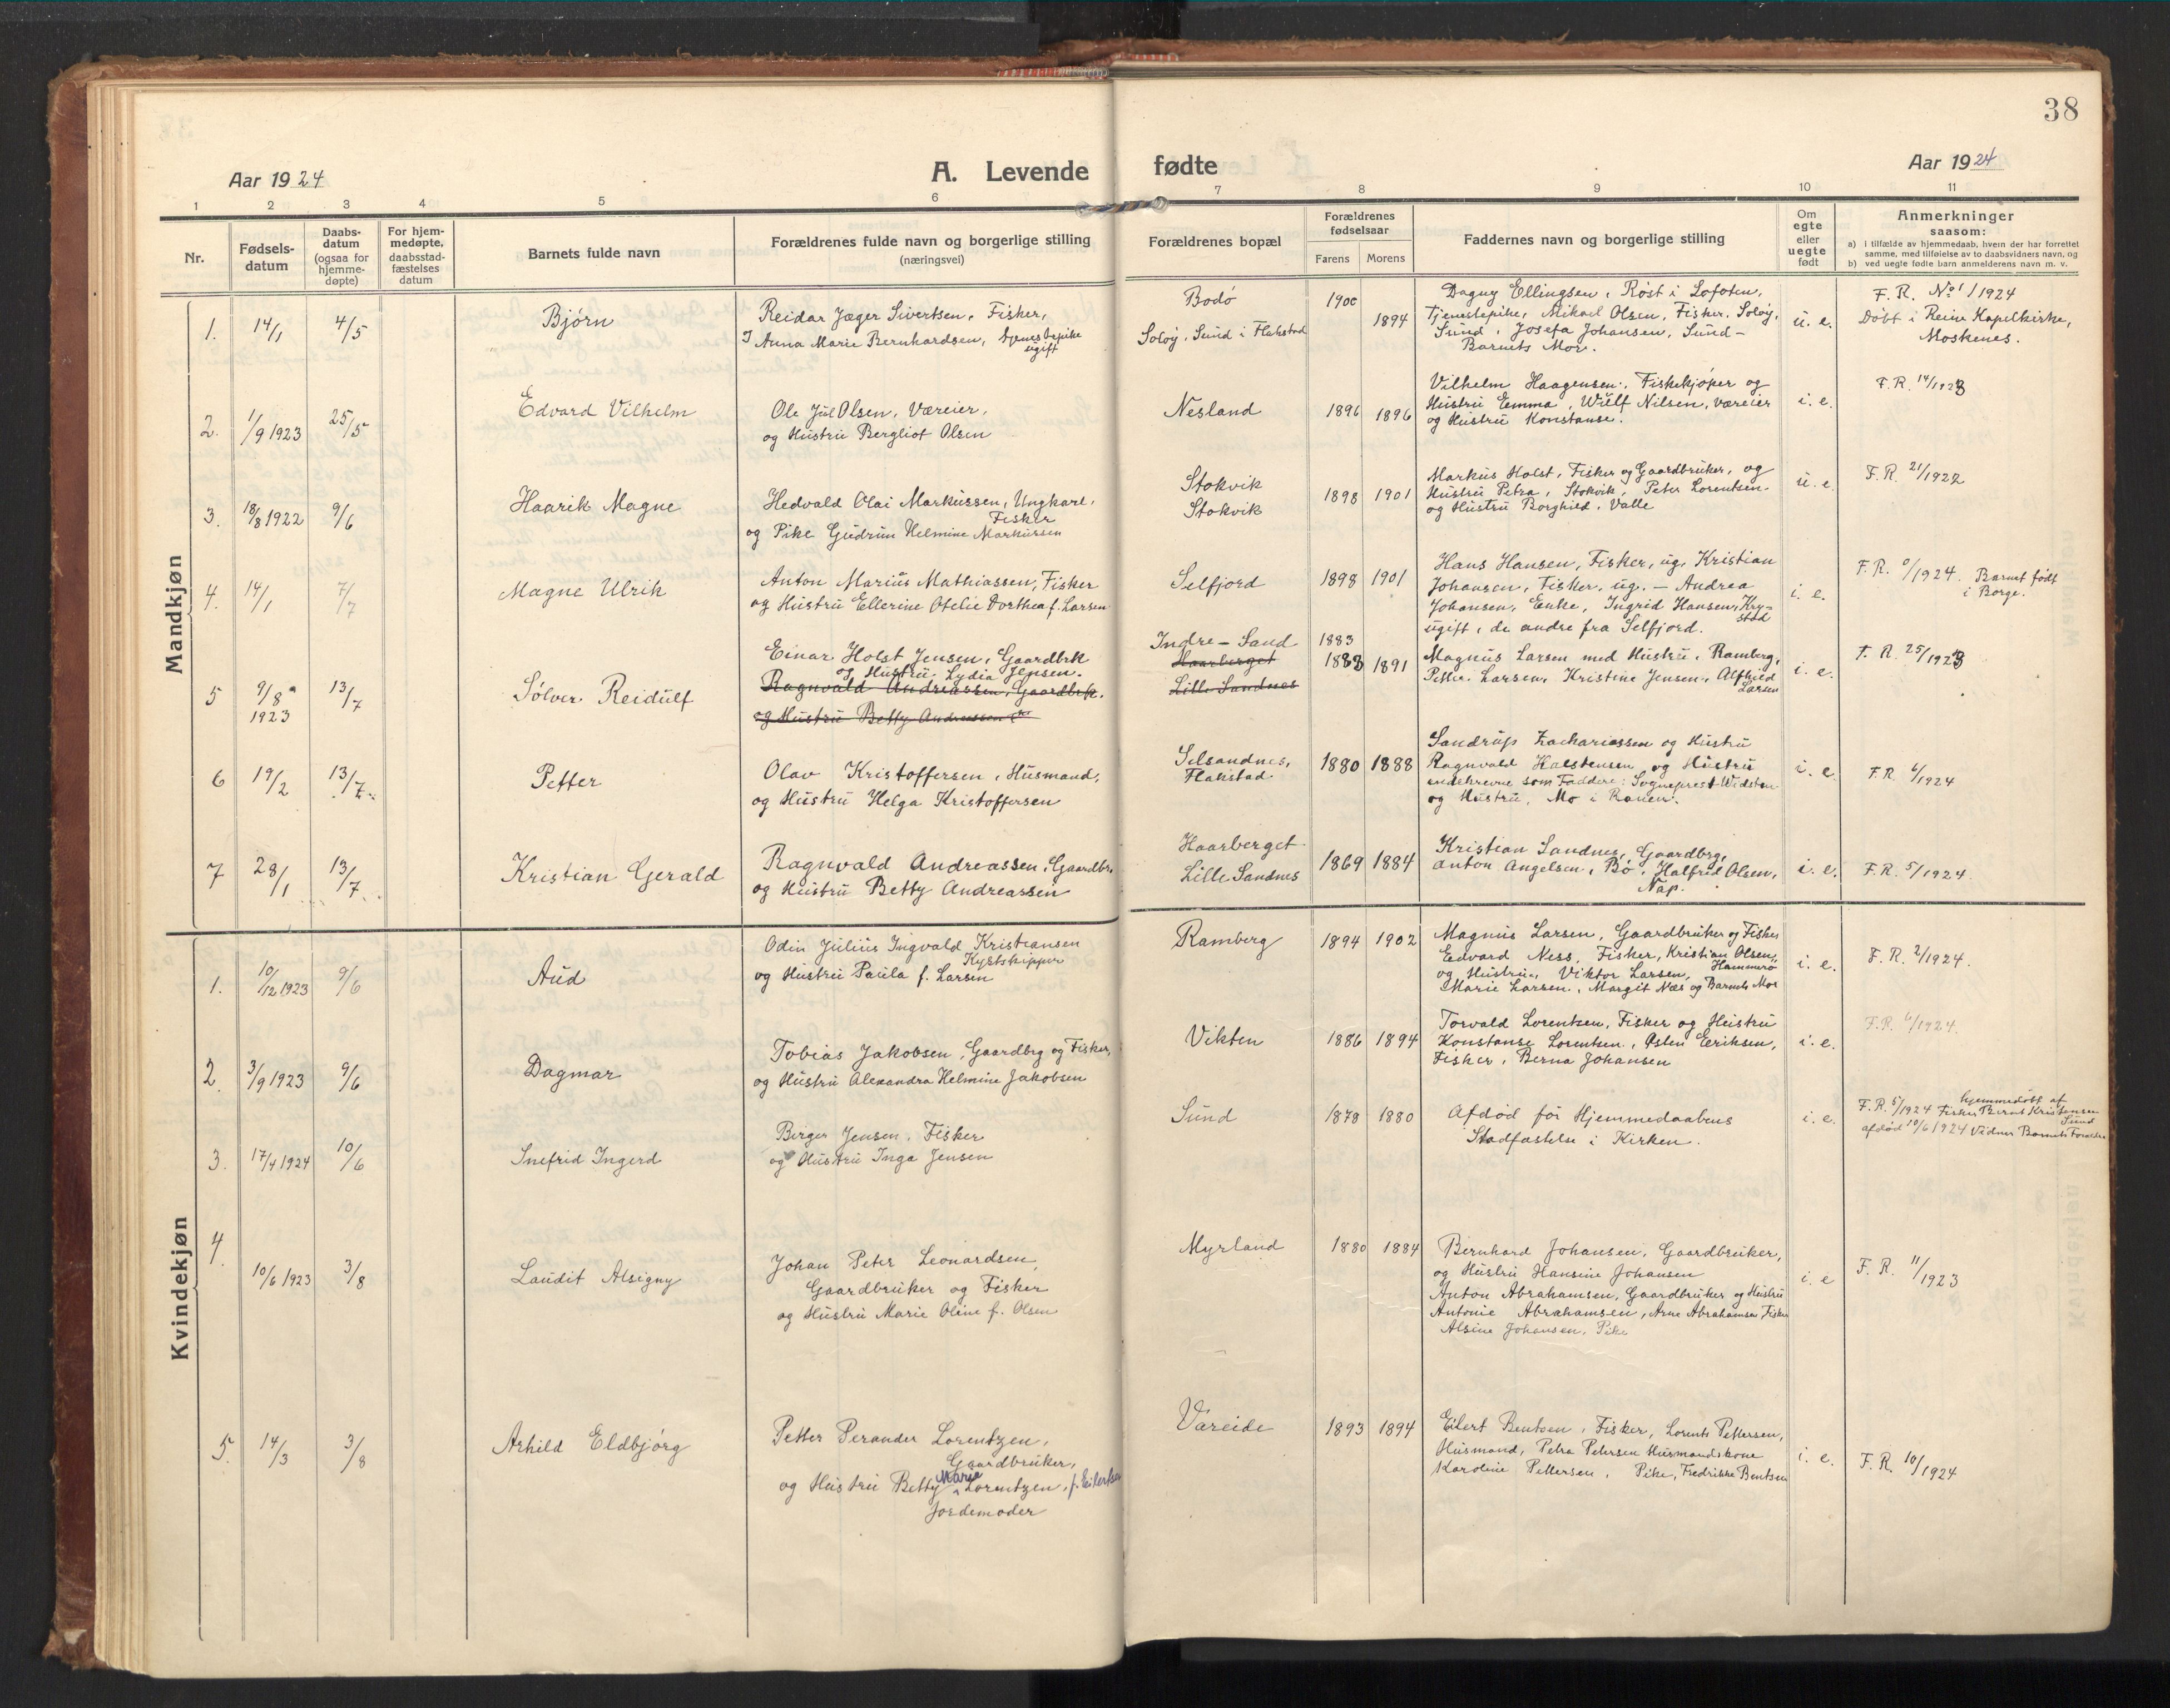 38
Aar 1924
A. Levende fødte
Aar 1924
1 2 3 4 5 6 7 8 9 10 11
Nr.
Fødsels-
datum
Daabs-
datum
(ogsaa for
hjemme-
døpte)
For hjem-
medøpte,
daabsstad-
fæstelses
datum
Barnets fulde navn
Forældrenes fulde navn og borgerlige stilling
(næringsvei)
Forældrenes bopæl
Forældrenes
fødselsaar
Farens Morens
Faddernes navn og borgerlige stilling
Om
egte
eller
uegte
født
Anmerkninger
saasom:
a) i tilfælde av hjemmedaab, hvem der har forrettet
samme, med tilføielse av to daabsvidners navn, og
b) ved uegte fødte barn anmelderens navn m. v.
Mandkjøn
1. 14/1 4/5 Bjørn
Reidar Jæger Sivertsen, Fisker,
Anna Marie Bernhardsen, tjenestepike
ugift
Bodö
Soløy, Sund i Flakstad
1900 1894
Dagny Ellingsen, Røst i Lofoten,
Tjenestepike, Mikael Olsen, Fisker, Soløy,
Sund, Josefa Johansen, Sund -
Barnets Mor.
u. e.
F. R. No 1/1924
Døbt i Reine Kapelkirke,
Moskenes.
2. 1/9 1923 25/5 Edvard Vilhelm
Ole Jul Olsen, Væreier,
og Hustru Bergliot Olsen
Nesland
1896 1896
Vilhelm Haagensen, Fiskekjøper og
Hustru Emma, Wulf Nilsen, væreier
og Hustru Konstanse.
i. e.
F. R. 14/1923
3. 18/8 1922 9/6 Haarik Magne
Hedvald Olai Markussen, Ungkarl,
Fisker
og Pike Gudrun Helmine Markussen
Stokvik
Stokvik
1898 1901
Markus Holst, Fisker og Gaardbruker, og
Hustru Petra, Stokvik, Peter Lorentsen
og Hustru Borghild, Valle
u. e.
F. R. 21/1922
4. 14/1 7/7 Magne Ulrik
Anton Marius Mathiassen, Fisker
og Hustru Ellerine Ofelie Dorthea f. Larsen
Selfjord
1898 1901
Hans Hansen, Fisker, ug. Kristian
Johansen, Fisker, ug. — Andrea
Johansen, Enke, Ingrid Hansen, Kry-
stad
ugift, de andre fra Selfjord.
i. e.
F. R. 9/1924. Barnet født
i Borge.
5 9/8 1923 13/7 Sølver Reidulf
Einar Holst Jensen, Gaardbrk
og Hustru Lydia Jensen.
Ragnvald Andreassen, Gaardbrk.
og Hustru Betty Andreassen
Indre - Sand
Haarberget
Lille Sandnes
1883
1883 1891
Magnus Larsen med Hustru, Ramberg,
Petter Larsen, Kristine Jensen, Alfhild
Larsen
i. e.
F. R. 25/1923
6 19/2 13/7 Petter
Olav Kristoffersen, Husmand,
og Hustru Helga Kristoffersen
Selsandnes,
Flakstad
1880 1888
Sandrup Zachariassen og Hustru
Ragnvald Halstensen og Hustru
som Faddere: Sogneprest Widsten
og Hustru, Mo i Ranen.
i. e.
F. R. 6/1924
7 28/1 13/7 Kristian Gerald
Ragnvald Andreassen, Gaardbr.
og Hustru Betty Andreassen
Haarberget
Lille Sandnes
1869 1884
Kristian Sandnes, Gaardbrg,
Anton Angelsen, Bø, Halfrid Olsen,
Nap.
i. e.
F. R. 5/1924.
Kvindekjøn
1. 10/12 1923 9/6 Aud
Odin Julius Ingvald Kristiansen
Kystskipper
og Hustru Paula f. Larsen
Ramberg
1894 1902
Magnus Larsen, Gaardbruker og Fisker
Edvard Ness, Fisker, Kristian Olsen,
Hammerø
og Hustru, Viktor Larsen,
Marie Larsen, Margit Næs og Barnets Mor
i. e.
F. R. 2/1924.
2. 3/9 1923 9/6 Dagmar
Tobias Jakobsen, Gaardbrg og Fisker,
og Hustru Alexandra Helmine Jakobsen
Vikten
1886 1894
Torvald Lorentsen, Fisker og Hustru
Konstanse Lorentsen, Aslen Eeriksen,
Fisker, Berna Johansen
i. e.
F. R. 6/1924.
3. 17/4 1924 10/6 Snefrid Ingerd
Birger Jensen, Fisker
og Hustru Inga Jensen
Sund
1878 1880
Afdød før Hjemmedaabens
Stadfæstelse i Kirken.
i. e.
hjemmedøbt af
F. R. 5/1924 Fisker Bernt Kristensen
Sund
afdød 10/6 1924 Vidner Barnets Forældre
4. 10/6 1923 3/8 Laudit Alsigny
Johan Peter Leonardsen,
Gaardbruker og Fisker
og Hustru Marie Oline f. Olsen
Myrland
1880 1884
Bernhard Johansen, Gaardbruker,
og Hustru Hansine Johansen
Anton Abrahamsen, Gaardbruker og Hustru
Antonie Abrahamsen, Arne Abrahamsen Fisker
Alsine Johansen, Pike
i. e
F. R. 11/1923
5. 14/3 3/8 Arhild Eldbjørg
Petter Perander Lorentzen,
Gaardbruker,
og Hustru Betty Marie Lorentzen, f. Eilertsen
Jordemoder
Vareide
1893 1894
Eilert Bentsen, Fisker, Lorents Pettersen,
Husmand, Petra Petersen Husmandskone
Karoline Pettersen, Pike, Fredrikke Bentsen
i. e.
F. R. 10/1924